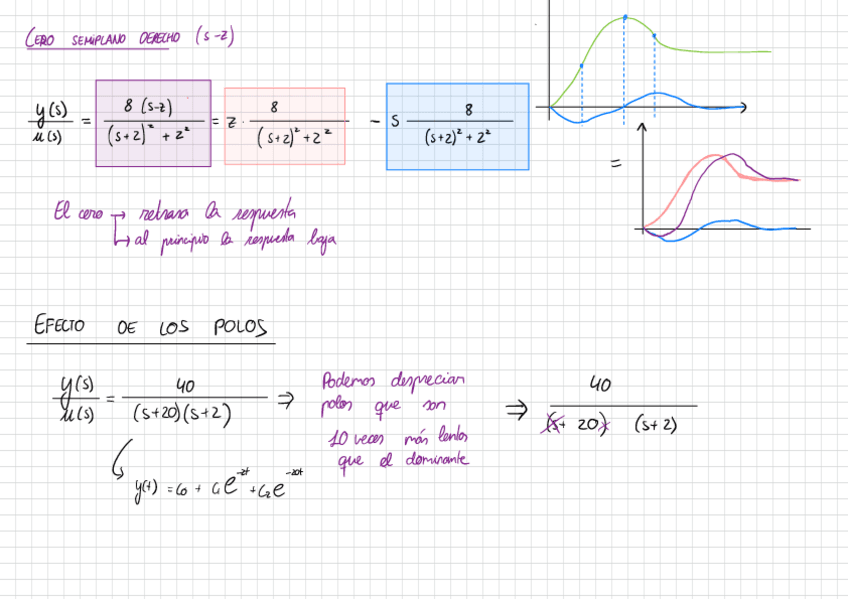 CERO SEMIPLANO DERECHO (s-z)
y(s)/u(s) = 8 (s-z)/((s+2)² + 2²) = z · 8/((s+2)² + 2²) - s 8/((s+2)² + 2²)
=
El cero → retrasa la respuesta
↳ al principio la respuesta baja
EFECTO DE LOS POLOS
y(s)/u(s) = 40/((s+20)(s+2)) ⇒
Podemos despreciar
polos que son
10 veces más lentos
que el dominante
⇒ 40/((s+ 20) (s+2))
y(t) = c₀ + c₁e^-2t + c₂e^-20t